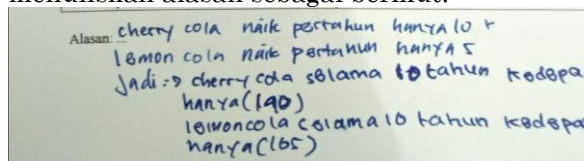 menuliskan alasan sebagai berikut:
Alasan: ... cherry cola naik pertahun hanya 10 r
lemon cola naik pertahun hanya 5
Jadi :→ cherry cola selama 10 tahun kedepa
hanya (190)
lemoncola celama 10 tahun kedepa
hanya (165)